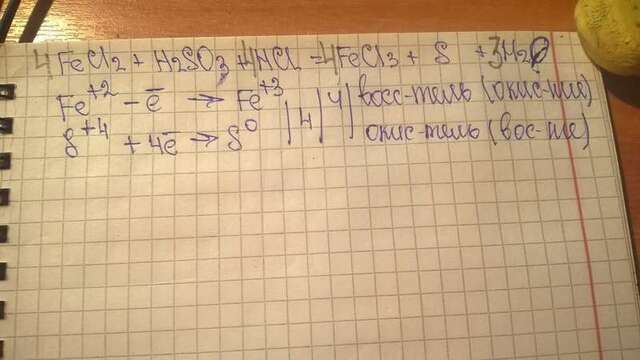 4FeCl2 + H2SO3 + 4HCl = 4FeCl3 + S + 3H2O
Fe+2 - ē → Fe+3 | 4 | восс-тель (окис-ние)
S+4 + 4ē → S0 | 4 | окис-тель (вос-ние)